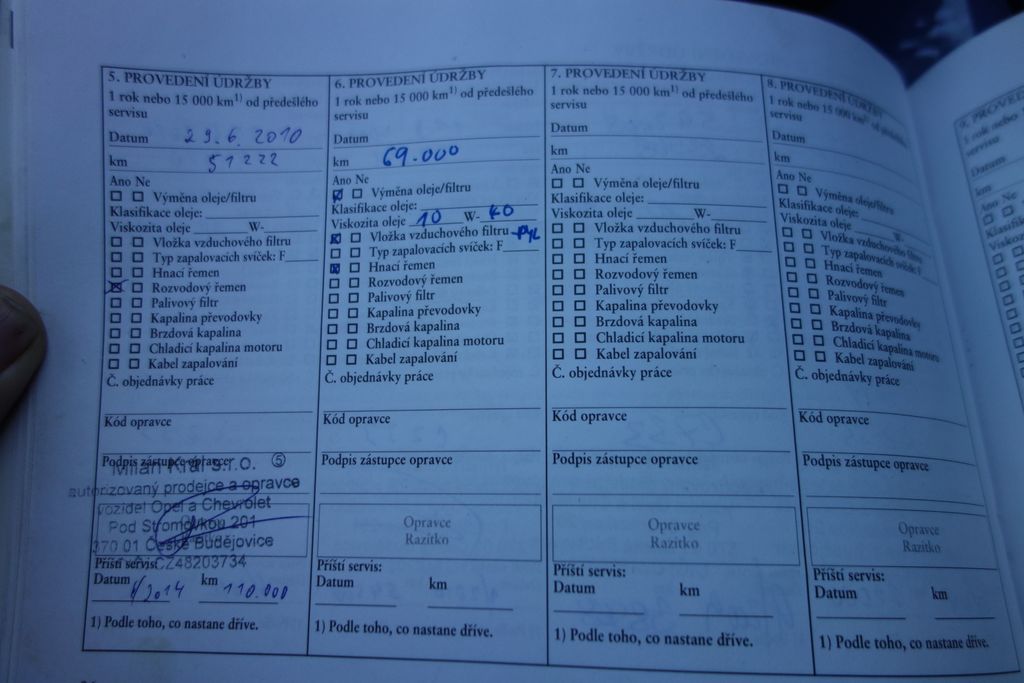 5. PROVEDENÍ ÚDRŽBY
1 rok nebo 15 000 km1) od předešlého
servisu
Datum 29.6.2010
km 51222
Ano Ne
Výměna oleje/filtru
Klasifikace oleje:
Viskozita oleje W-
Vložka vzduchového filtru
Typ zapalovacích svíček: F
Hnací řemen
Rozvodový řemen
Palivový filtr
Kapalina převodovky
Brzdová kapalina
Chladicí kapalina motoru
Kabel zapalování
Č. objednávky práce
Kód opravce
Podpis zástupce opravce
Milan Král s.r.o. 5
autorizovaný prodejce a opravce
vozidel Opel a Chevrolet
Pod Stromovkou 201
370 01 České Budějovice
CZ48203734
Příští servis:
Datum 1/2014 km 110.000
1) Podle toho, co nastane dříve.
6. PROVEDENÍ ÚDRŽBY
1 rok nebo 15 000 km1) od předešlého
servisu
Datum
km 69.000
Ano Ne
Výměna oleje/filtru
Klasifikace oleje:
Viskozita oleje 10 W- 40
Vložka vzduchového filtru -PYL
Typ zapalovacích svíček: F
Hnací řemen
Rozvodový řemen
Palivový filtr
Kapalina převodovky
Brzdová kapalina
Chladicí kapalina motoru
Kabel zapalování
Č. objednávky práce
Kód opravce
Podpis zástupce opravce
Opravce
Razítko
Příští servis:
Datum km
1) Podle toho, co nastane dříve.
7. PROVEDENÍ ÚDRŽBY
1 rok nebo 15 000 km1) od předešlého
servisu
Datum
km
Ano Ne
Výměna oleje/filtru
Klasifikace oleje:
Viskozita oleje W-
Vložka vzduchového filtru
Typ zapalovacích svíček: F
Hnací řemen
Rozvodový řemen
Palivový filtr
Kapalina převodovky
Brzdová kapalina
Chladicí kapalina motoru
Kabel zapalování
Č. objednávky práce
Kód opravce
Podpis zástupce opravce
Opravce
Razítko
Příští servis:
Datum km
1) Podle toho, co nastane dříve.
8. PROVEDENÍ ÚDRŽBY
1 rok nebo 15 000 km1) od předešlého
servisu
Datum
km
Ano Ne
Výměna oleje/filtru
Klasifikace oleje:
Viskozita oleje W-
Vložka vzduchového filtru
Typ zapalovacích svíček: F
Hnací řemen
Rozvodový řemen
Palivový filtr
Kapalina převodovky
Brzdová kapalina
Chladicí kapalina motoru
Kabel zapalování
Č. objednávky práce
Kód opravce
Podpis zástupce opravce
Opravce
Razítko
Příští servis:
Datum km
1) Podle toho, co nastane dříve.
9. PROVED
1 rok nebo
servisu
Datum
km
Ano Ne